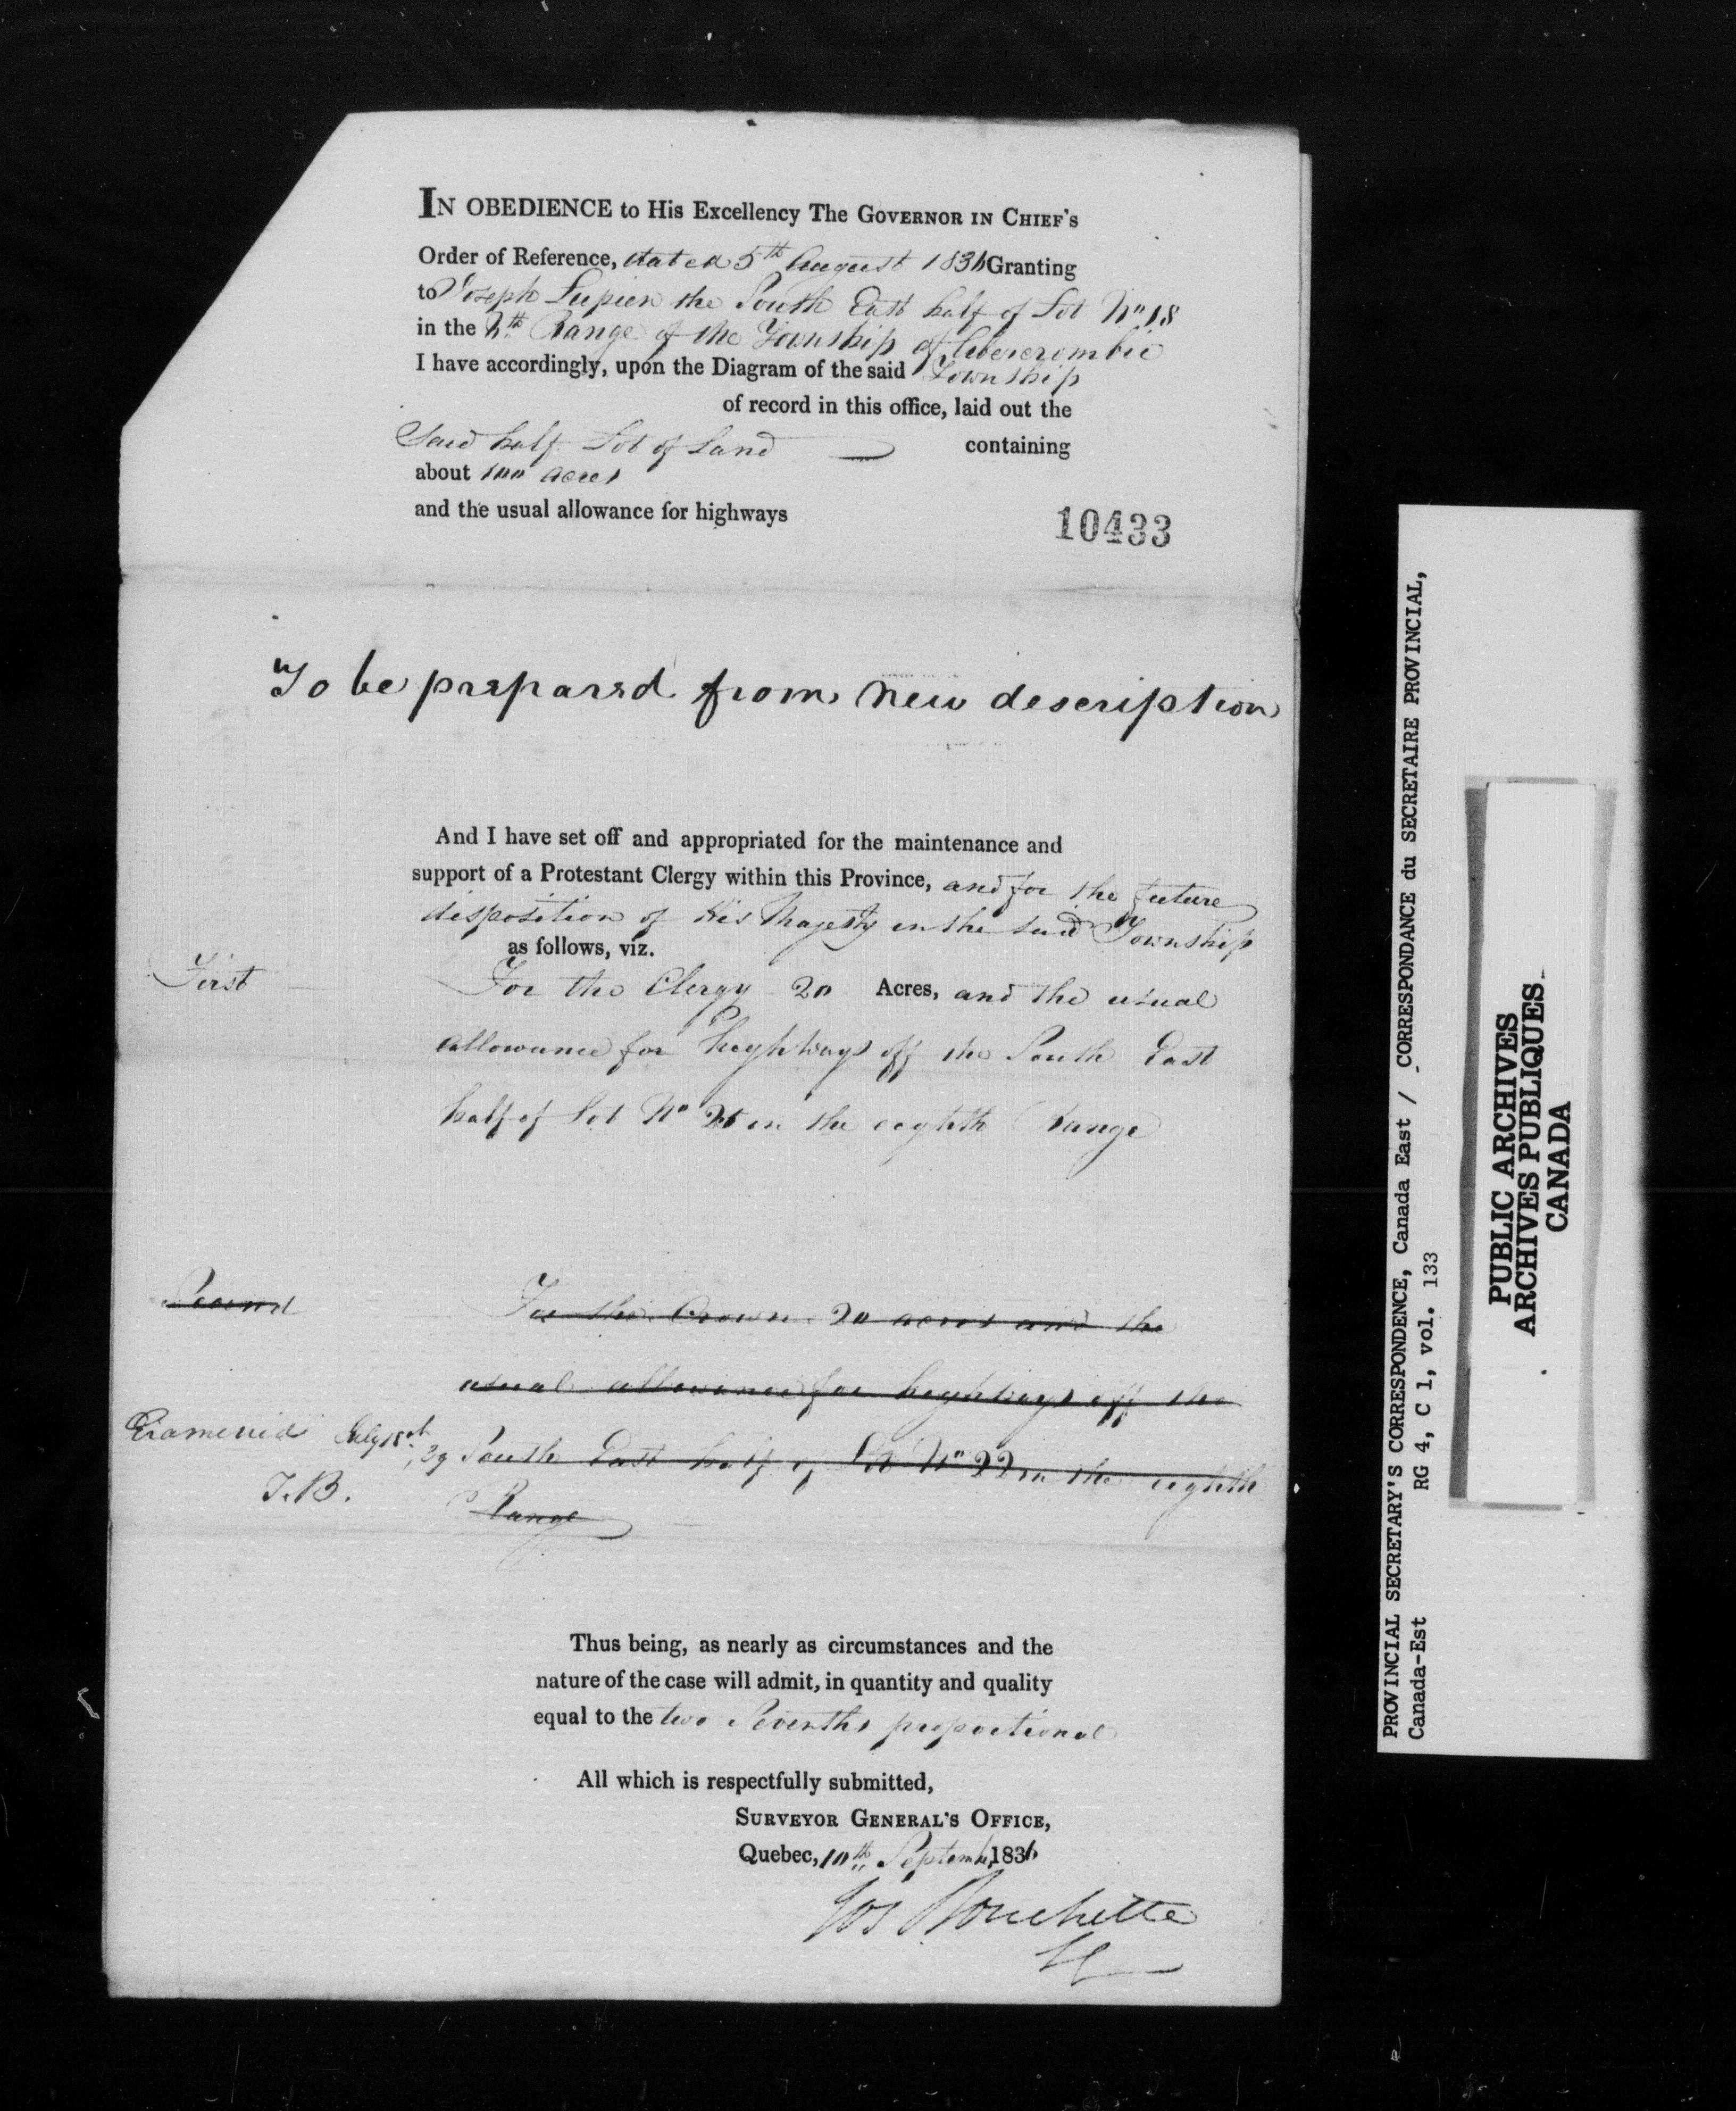 IN OBEDIENCE to His Excellency The GOVERNOR IN CHIEF'S
Order of Reference, dated 5th August 1836 Granting
to Joseph Lupien the South East half of Lot No 18
in the Range of the Township of Abercrombie
I have accordingly, upon the Diagram of the said Township
of record in this office, laid out the
Said half Lot of Land containing
about 100 acres
and the usual allowance for highways
10433
To be prepared from new description
And I have set off and appropriated for the maintenance and
support of a Protestant Clergy within this Province, and for the future
disposition of His Majesty in the said Township
as follows, viz.
First For the Clergy 20 Acres, and the usual
allowance for highways off the South East
half of Lot No in the eighth Range
Second For the Crown 20 acres and the
usual allowance for highways off the
South East half of Lot No 22 in the eighth
Range
Examened July
T.B.
Thus being, as nearly as circumstances and the
nature of the case will admit, in quantity and quality
equal to the two Sevenths proportional
All which is respectfully submitted,
SURVEYOR GENERAL'S OFFICE,
Quebec, 10th Septembr 1836
Jos Bouchette
PROVINCIAL SECRETARY'S CORRESPONDENCE, Canada East / CORRESPONDANCE du SECRETAIRE PROVINCIAL,
Canada-Est RG 4, C 1, vol. 133
PUBLIC ARCHIVES
ARCHIVES PUBLIQUES
CANADA